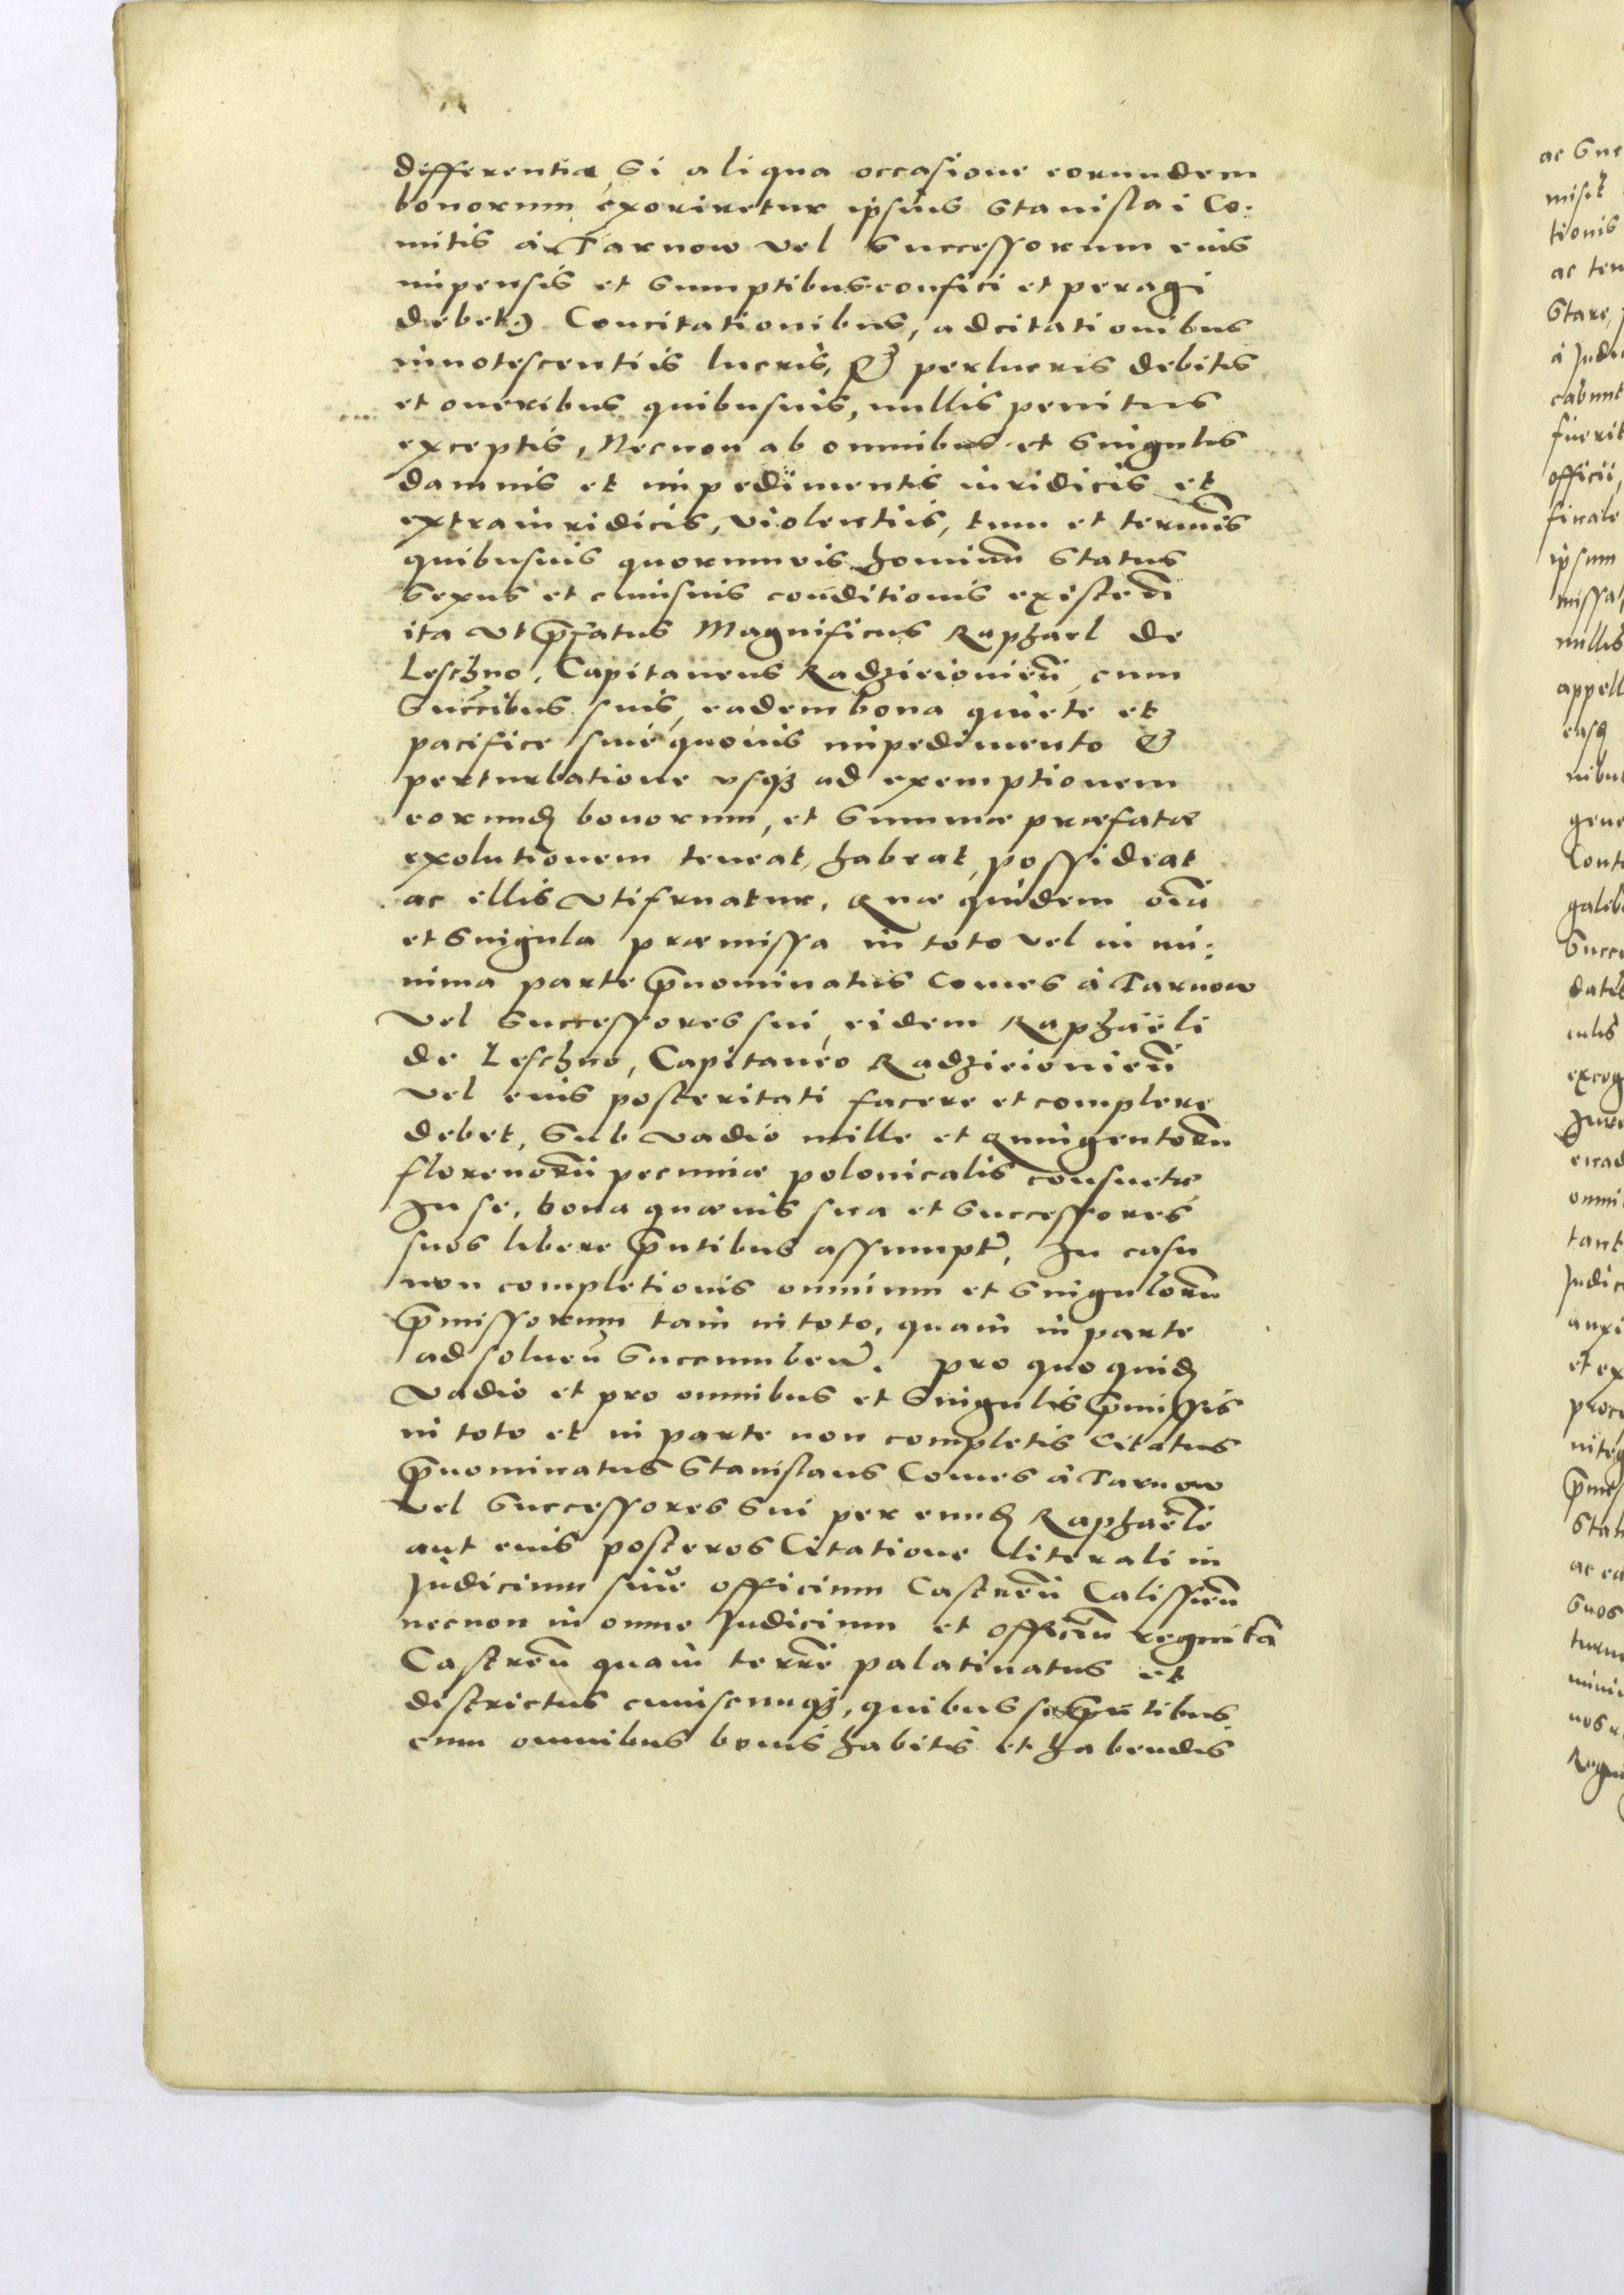 differentia, Si aliqua occasione eorundem
bonorum exoriretur ipsius Stanislai Co:
mitis à Tarnow vel Successorum eius
impensis et Sumptibus confici et peragi
debet) Concitationibus, adcitationibus
innotescentiis lucris, & perlucris debitis
et oneribus quibusuis, nullis penitus
exceptis, Necnon ab omnibus et Singulis
damnis et impedimentis iuridicis et
extraiuridicis, violentiis, tum et termīs
quibusuis quorumvis hominū Status
Sexus et cuiusuis conditionis existeñ
ita vt p̄fatus Magnificus Raphael de
Leschno, Capitaneus Radzieiovieñ cum
Succībus suis, eadem bona quiete et
pacifice sine quouis impedimento &
perturbatione vsq3 ad exemptionem
eorund bonorum, et Summæ præfatæ
exolutionem teneat, habeat, possideat
ac illis vtifruatur. Quæ quidem oīa
et Singula præmissa in toto vel in mi:
nima parte p̄nominatus Comes à Tarnow
vel Successores sui, eidem Raphaëli
de Leschno, Capitaneo Radzieiovieñ
vel eius posteritati facere et complere
debet, Sub vadio mille et Quingentorū
florenorū pecuniæ polonicalis consuetæ
In se, bona quæuis sua et Successores
suos libere p̄ntibus assumpt, In casu
non completionis omnium et Singulorū
p̄missorum tam in toto, quam in parte
ad solueñ Succumbeñ. pro quo quid
vadio et pro omnibus et Singulis p̄missis
in toto et in parte non completis Citatus
p̄nominatus Stanislaus Comes à Tarnow
vel Successores Sui per eund Raphaëlē
aut eius posteros Citatione literali in
Judicium siue officium Castreñ Calissieñ
necnon in omne Judicium et officiū regni tā
Castreñ quam terrē palatinatus et
districtus cuiuscunq3, quibus se p̄ntibus
cum omnibus bonis habitis et habendis